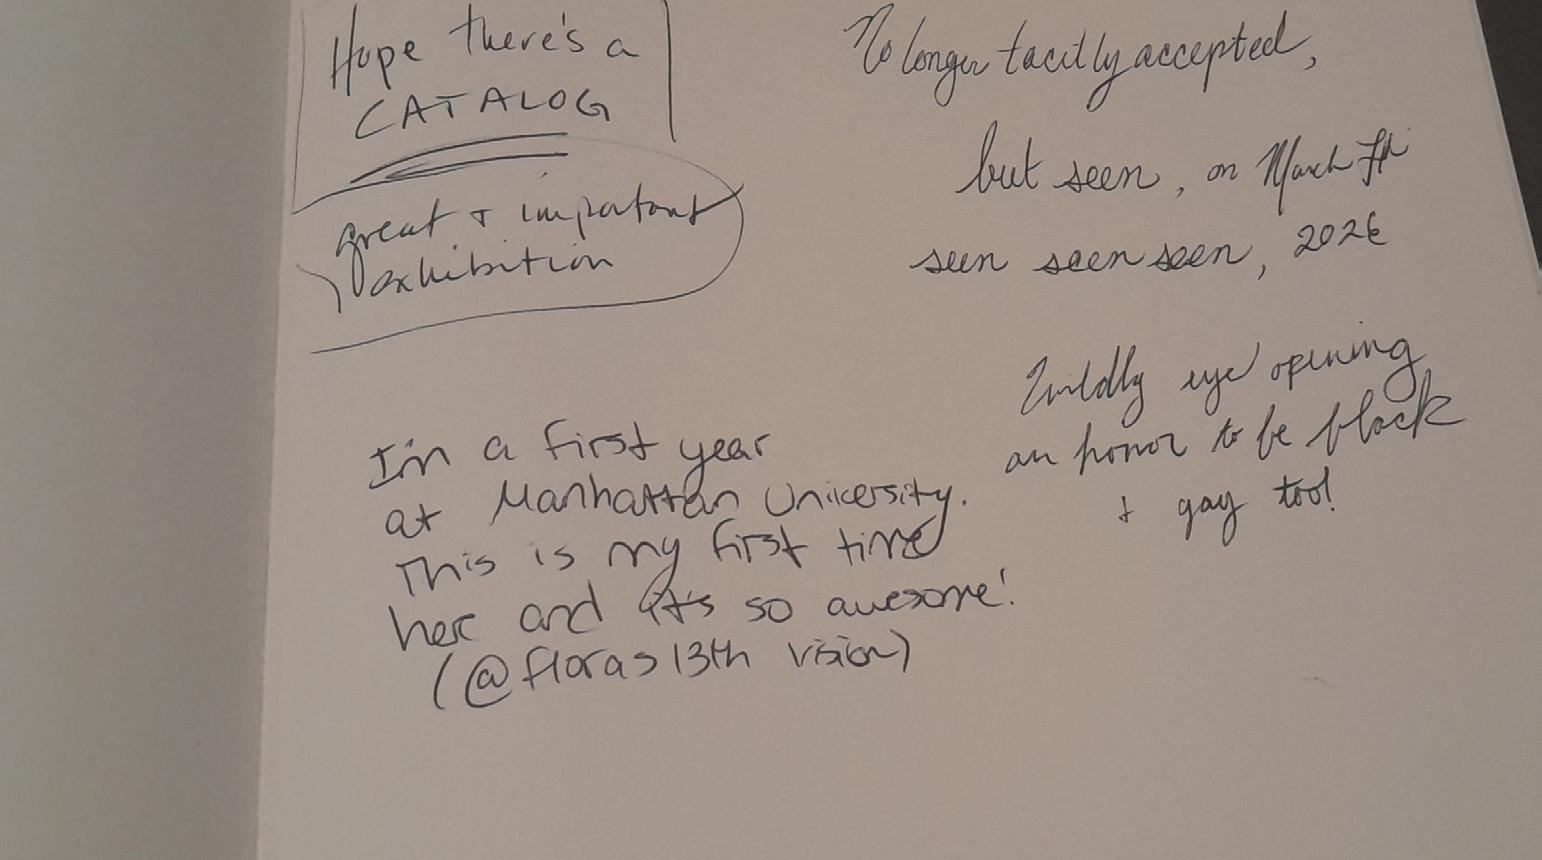 Hope there's a
CATALOG
great + important
exhibition
No longer tacitly accepted,
but seen, on March 7th
seen seen seen, 2026
Wildly eye opening
an honor to be black
+ gay too!
I'm a first year
at Manhattan University.
This is my first time
here and it's so awesome!
(@floras13th vision)